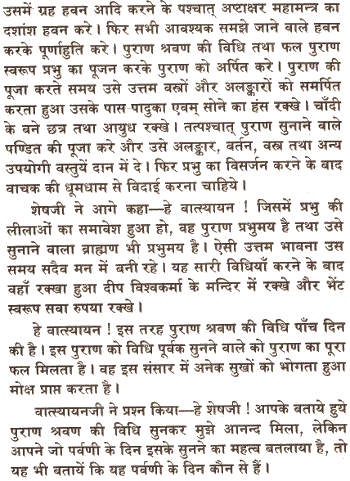 उसमें ग्रह हवन आदि करने के पश्चात् अष्टाक्षर महामन्त्र का
दशांश हवन करे । फिर सभी आवश्यक समझे जाने वाले हवन
करके पूर्णाहुति करे । पुराण श्रवण की विधि तथा फल पुराण
स्वरूप प्रभु का पूजन करके पुराण को अर्पित करे । पुराण की
पूजा करते समय उसे उत्तम वस्त्रों और अलङ्कारों को समर्पित
करता हुआ उसके पास पादुका एवम् सोने का हंस रक्खे । चाँदी
के बने छत्र तथा आयुध रक्खे । तत्पश्चात् पुराण सुनाने वाले
पण्डित की पूजा करे और उसे अलङ्कार, बर्तन, वस्त्र तथा अन्य
उपयोगी वस्तुयें दान में दे । फिर प्रभु का विसर्जन करने के बाद
वाचक की धूमधाम से विदाई करना चाहिये ।
शेषजी ने आगे कहा—हे वात्स्यायन ! जिसमें प्रभु की
लीलाओं का समावेश हुआ हो, वह पुराण प्रभुमय है तथा उसे
सुनाने वाला ब्राह्मण भी प्रभुमय है । ऐसी उत्तम भावना उस
समय सदैव मन में बनी रहे । यह सारी विधियाँ करने के बाद
वहाँ रक्खा हुआ दीप विश्वकर्मा के मन्दिर में रक्खे और भेंट
स्वरूप सवा रुपया रक्खे ।
हे वात्स्यायन ! इस तरह पुराण श्रवण की विधि पाँच दिन
की है । इस पुराण को विधि पूर्वक सुनने वाले को पुराण का पूरा
फल मिलता है । वह इस संसार में अनेक सुखों को भोगता हुआ
मोक्ष प्राप्त करता है ।
वात्स्यायनजी ने प्रश्न किया—हे शेषजी ! आपके बताये हुये
पुराण श्रवण की विधि सुनकर मुझे आनन्द मिला, लेकिन
आपने जो पर्वणी के दिन इसके सुनने का महत्व बतलाया है, तो
यह भी बतायें कि यह पर्वणी के दिन कौन से हैं ।